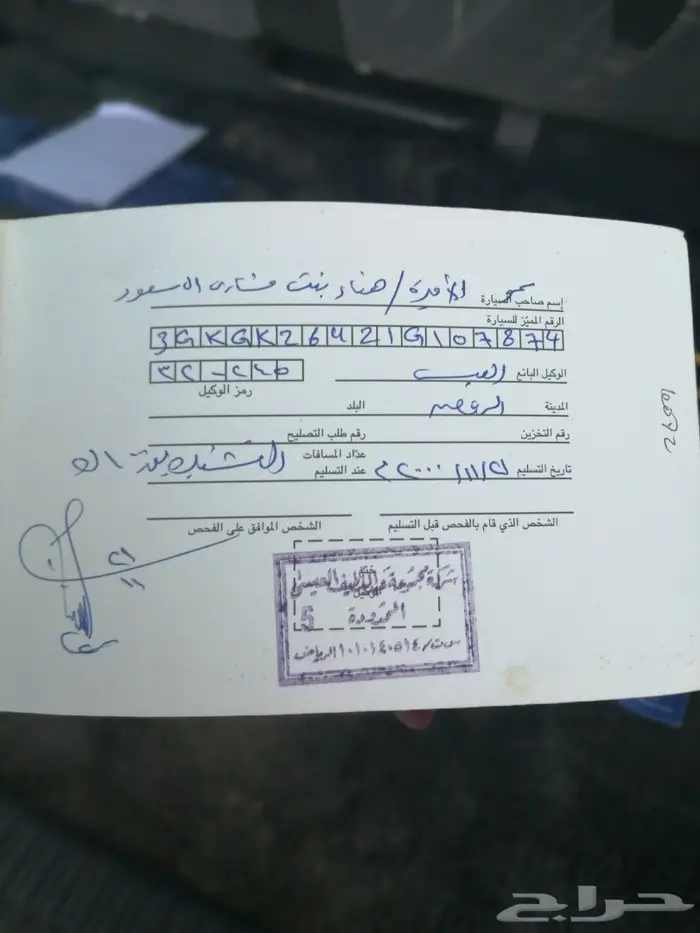 إسم صاحب السيارة سمو الأميرة / هناء بنت مشاري ال سعود
الرقم المميّز للسيارة
3GKGK26421G107874
الوكيل البائع العيسى
رمز الوكيل
المدينة الرياض البلد
رقم التخزين رقم طلب التصليح
تاريخ التسليم ٢١/١١/٢٠٠٠م عدّاد المسافات عند التسليم
الشخص الذي قام بالفحص قبل التسليم الشخص الموافق على الفحص
شركة مجموعة عبداللطيف العيسى
المحدودة 5
س.ت/ ١٠١٠١٤٠٥١٤ الرياض
حراج